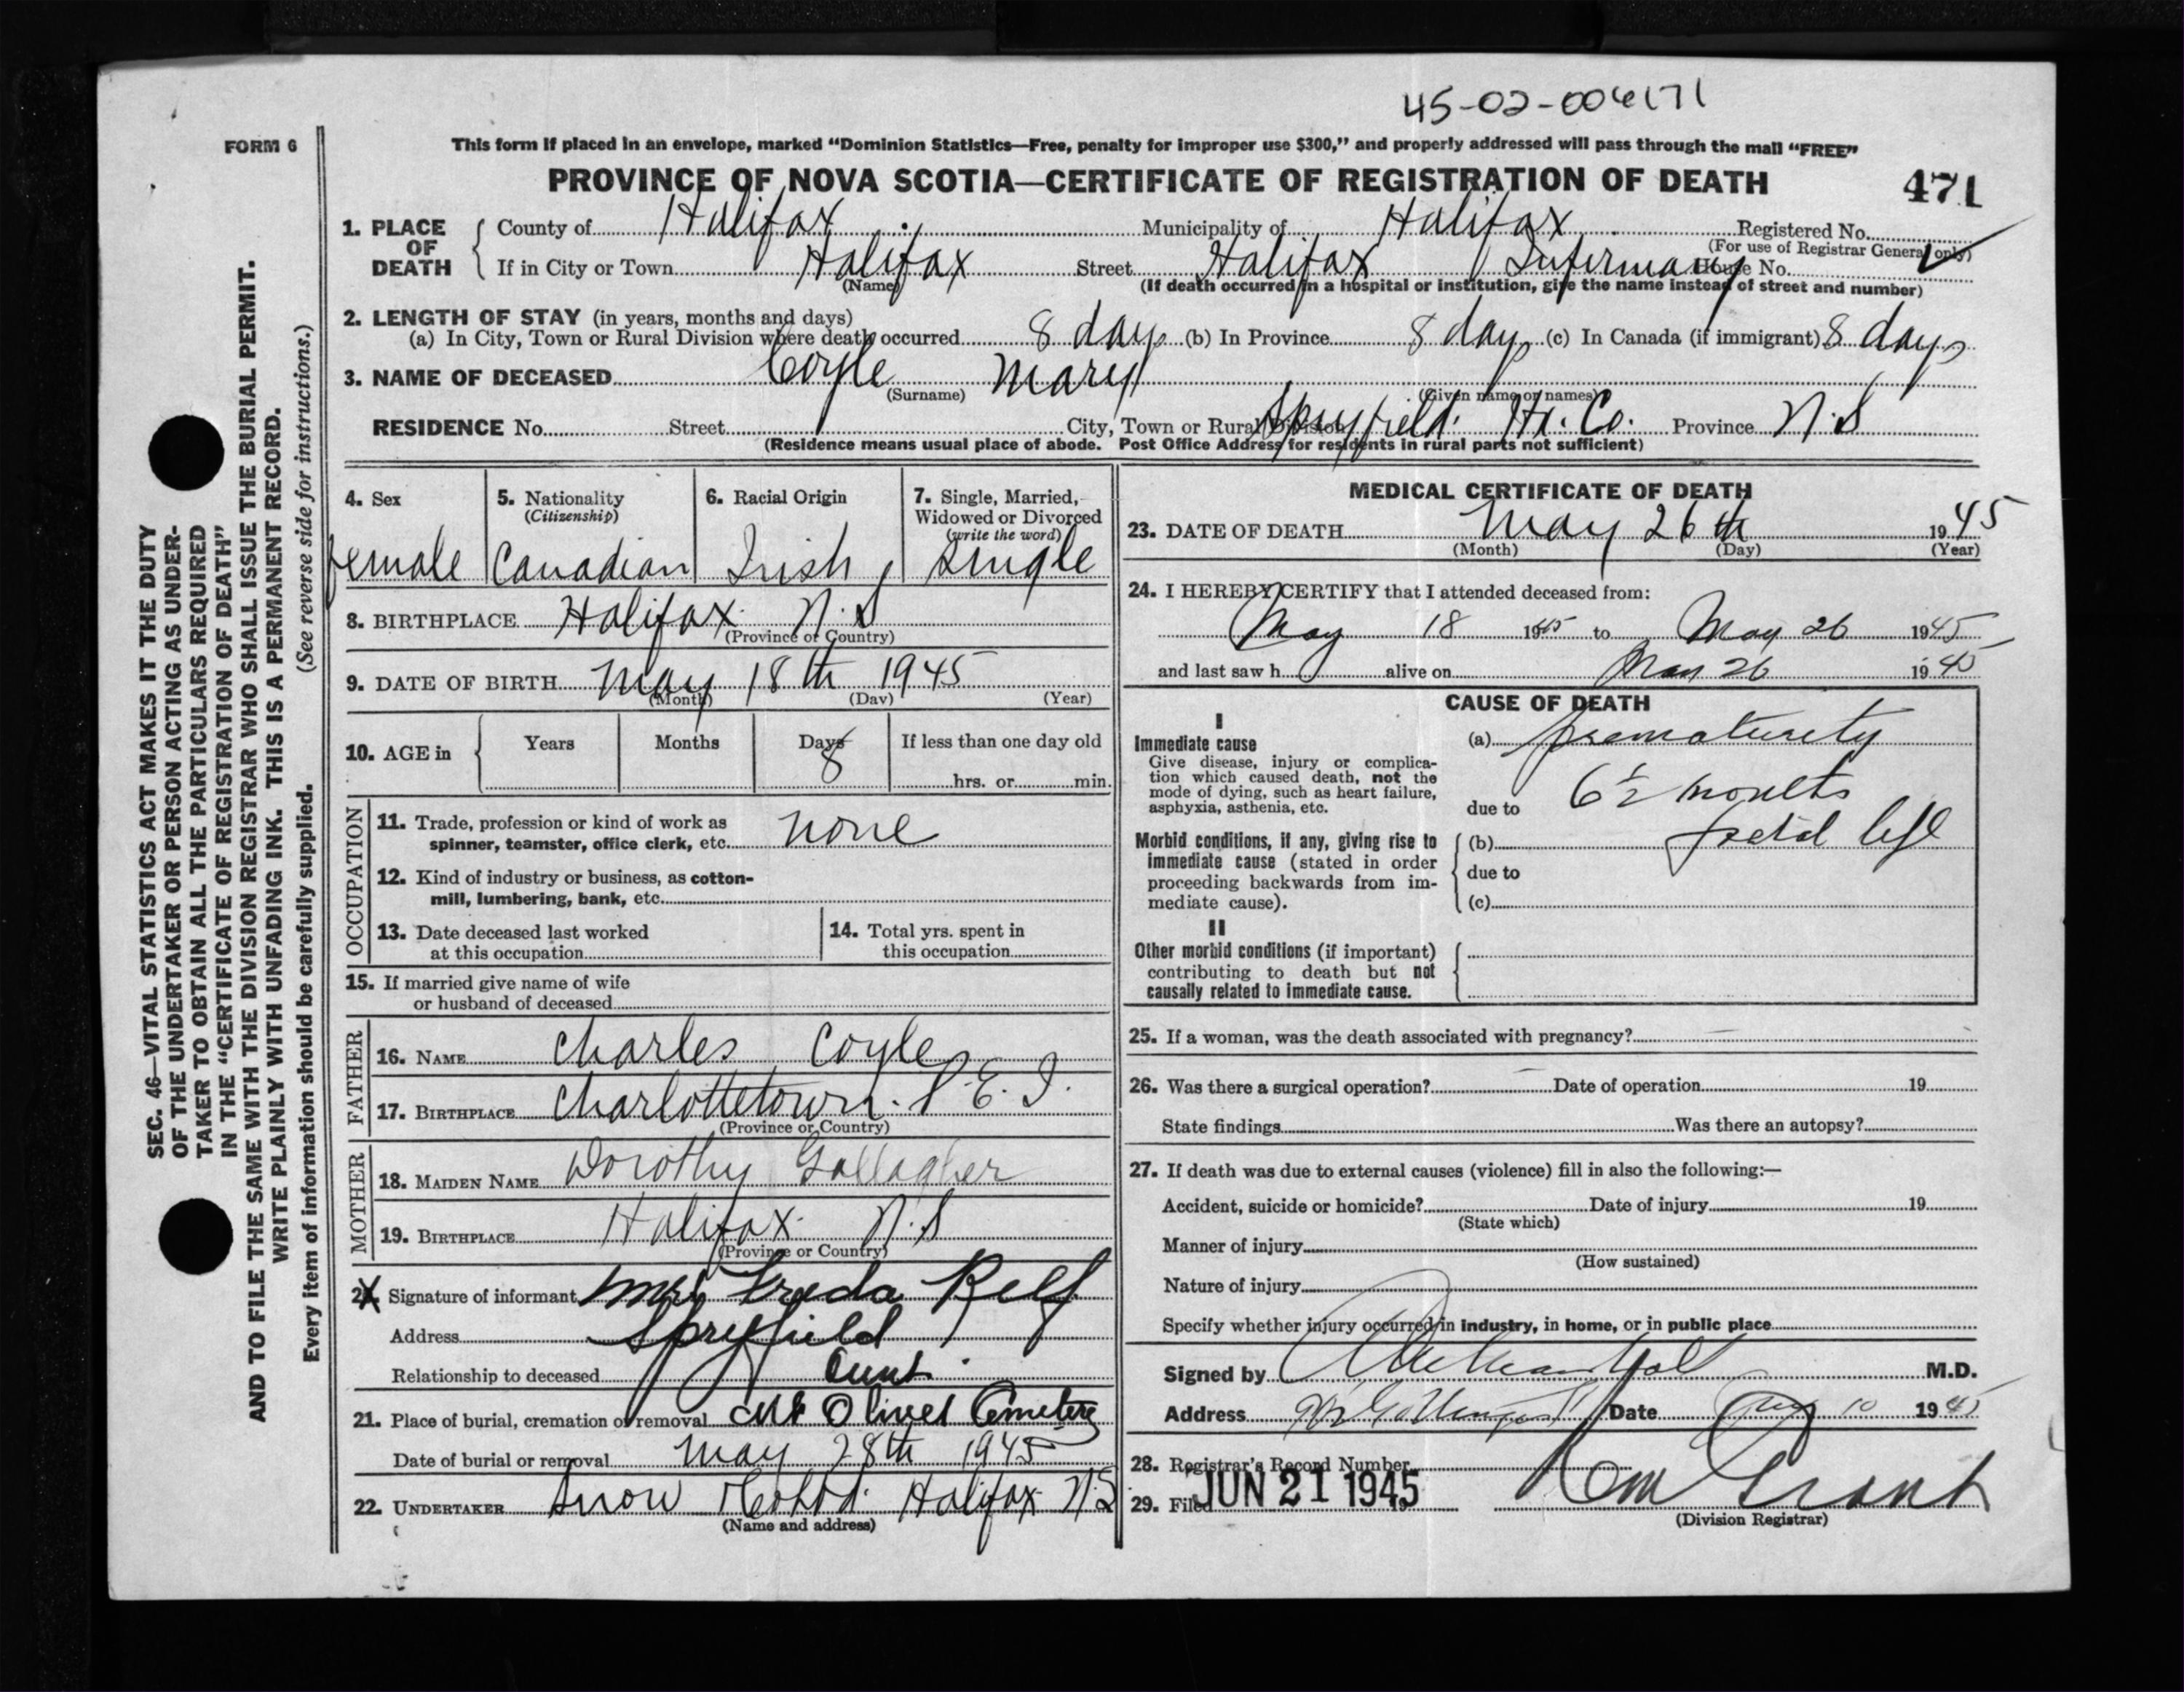 45-02-004171
FORM 6
This form if placed in an envelope, marked “Dominion Statistics—Free, penalty for improper use $300,” and properly addressed will pass through the mail “FREE”
PROVINCE OF NOVA SCOTIA—CERTIFICATE OF REGISTRATION OF DEATH
471
1. PLACE OF DEATH
County of Halifax Municipality of Halifax Registered No.
(For use of Registrar General only)
If in City or Town Halifax Street Halifax Infirmary House No.
(Name) (If death occurred in a hospital or institution, give the name instead of street and number)
2. LENGTH OF STAY (in years, months and days)
(a) In City, Town or Rural Division where death occurred 8 days (b) In Province 8 days (c) In Canada (if immigrant) 8 days
3. NAME OF DECEASED Coyle Mary
(Surname) (Given name or names)
RESIDENCE No. Street City, Town or Rural Division Spryfield Hx. Co. Province N.S
(Residence means usual place of abode. Post Office Address for residents in rural parts not sufficient)
4. Sex
female
5. Nationality
(Citizenship)
Canadian
6. Racial Origin
Irish
7. Single, Married, Widowed or Divorced
(write the word)
Single
8. BIRTHPLACE Halifax N.S
(Province or Country)
9. DATE OF BIRTH May 18th 1945
(Month) (Day) (Year)
10. AGE in Years Months Days If less than one day old
8 hrs. or min.
OCCUPATION
11. Trade, profession or kind of work as
spinner, teamster, office clerk, etc. none
12. Kind of industry or business, as cotton-
mill, lumbering, bank, etc.
13. Date deceased last worked
at this occupation
14. Total yrs. spent in
this occupation
15. If married give name of wife
or husband of deceased
FATHER
16. NAME Charles Coyle
17. BIRTHPLACE Charlottetown. P.E.I.
(Province or Country)
MOTHER
18. MAIDEN NAME Dorothy Gallagher
19. BIRTHPLACE Halifax N.S
(Province or Country)
Signature of informant Mrs Freda Relf
Address Spryfield
Relationship to deceased Aunt
21. Place of burial, cremation or removal Mt Olivet Cemetery
Date of burial or removal May 28th 1945
22. UNDERTAKER Snow & Co Ltd. Halifax N.S
(Name and address)
MEDICAL CERTIFICATE OF DEATH
23. DATE OF DEATH May 26th 1945
(Month) (Day) (Year)
24. I HEREBY CERTIFY that I attended deceased from:
May 18 1945 to May 26 1945
and last saw h alive on May 26 1945
CAUSE OF DEATH
I
Immediate cause
Give disease, injury or complica-
tion which caused death, not the
mode of dying, such as heart failure,
asphyxia, asthenia, etc.
(a) prematurity
due to 6½ months
Morbid conditions, if any, giving rise to
immediate cause (stated in order
proceeding backwards from im-
mediate cause).
(b) foetal life
due to
(c)
II
Other morbid conditions (if important)
contributing to death but not
causally related to immediate cause.
25. If a woman, was the death associated with pregnancy?
26. Was there a surgical operation? Date of operation 19
State findings Was there an autopsy?
27. If death was due to external causes (violence) fill in also the following:—
Accident, suicide or homicide? Date of injury 19
(State which)
Manner of injury
(How sustained)
Nature of injury
Specify whether injury occurred in industry, in home, or in public place
Signed by M.D.
Address Date 10 1945
28. Registrar's Record Number
29. Filed JUN 21 1945 Grant
(Division Registrar)
SEC. 46—VITAL STATISTICS ACT MAKES IT THE DUTY
OF THE UNDERTAKER OR PERSON ACTING AS UNDER-
TAKER TO OBTAIN ALL THE PARTICULARS REQUIRED
IN THE “CERTIFICATE OF REGISTRATION OF DEATH”
AND TO FILE THE SAME WITH THE DIVISION REGISTRAR WHO SHALL ISSUE THE BURIAL PERMIT.
WRITE PLAINLY WITH UNFADING INK. THIS IS A PERMANENT RECORD.
Every item of information should be carefully supplied. (See reverse side for instructions.)